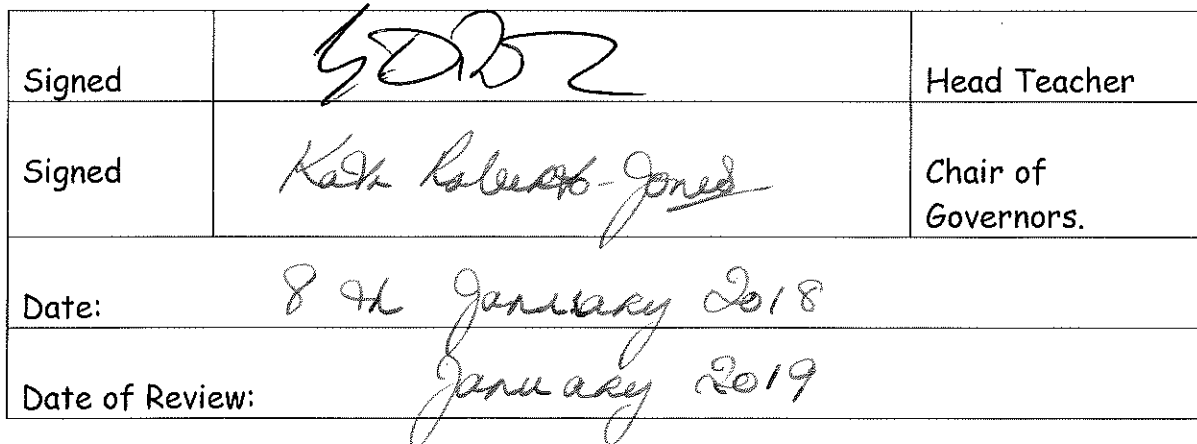 Signed Head Teacher
Signed Kath Roberts-Jones Chair of
Governors.
Date: 8th January 2018
Date of Review: January 2019